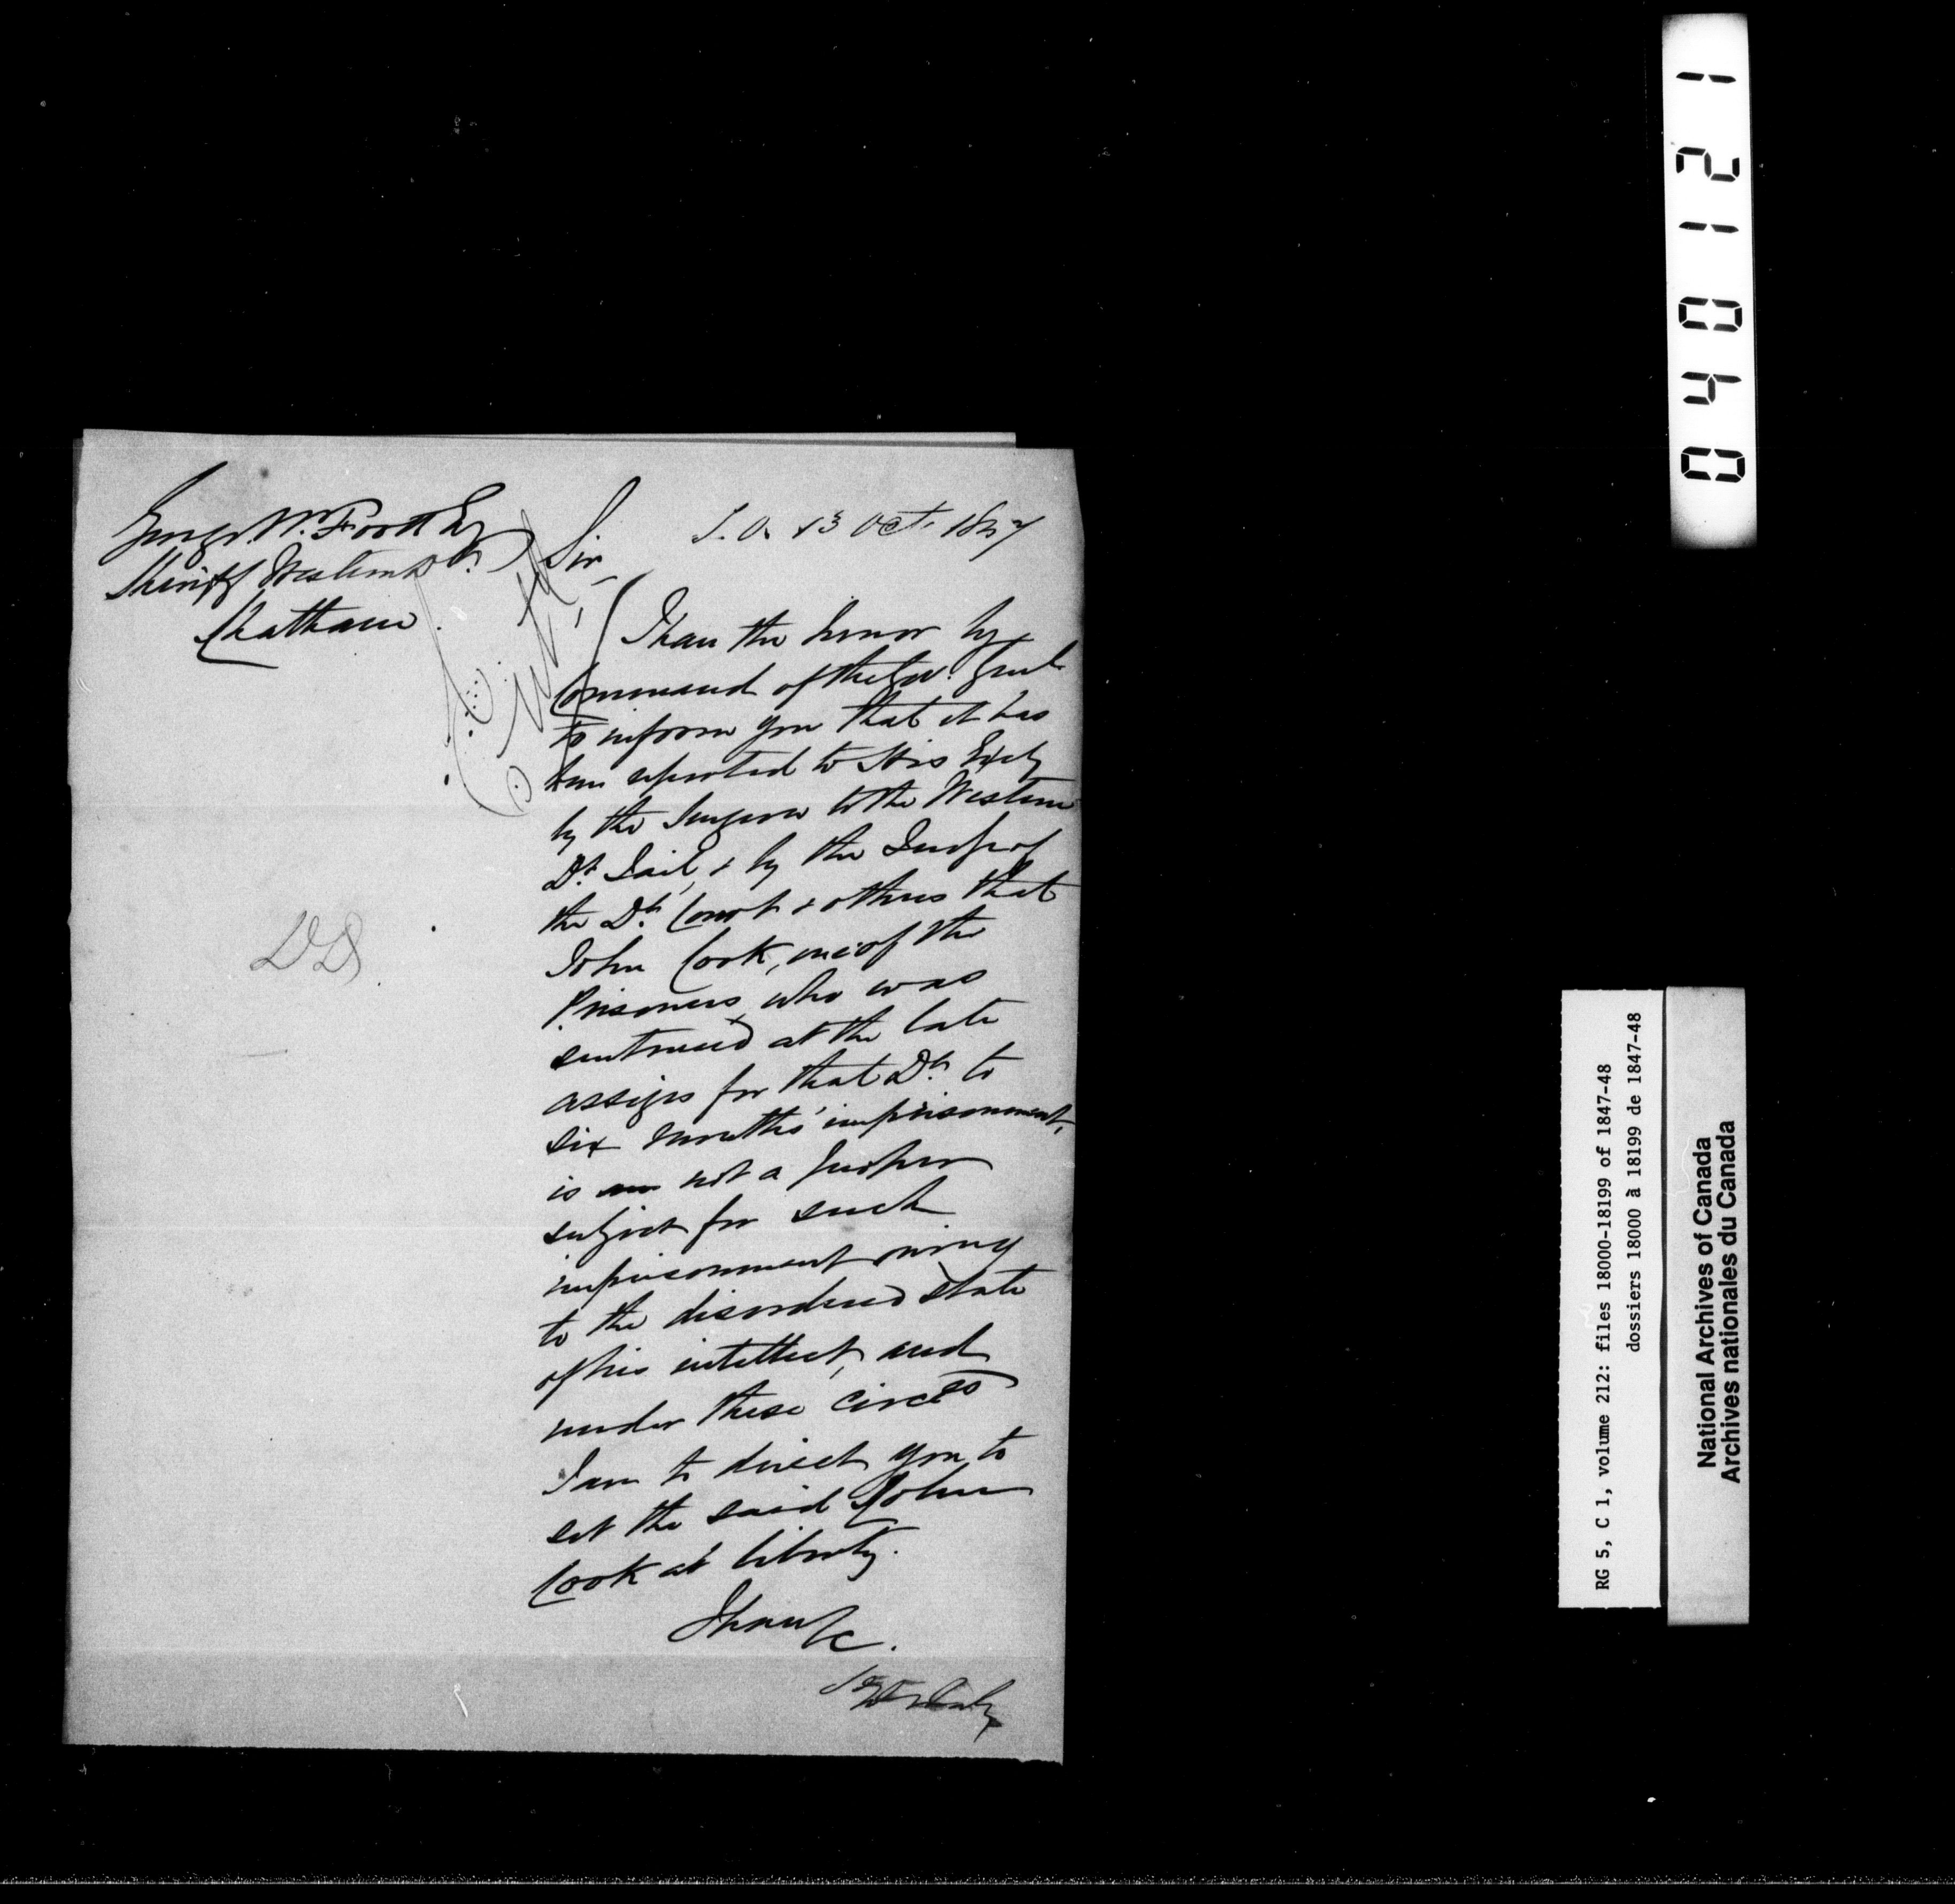 George W. Foott Esq
Sheriff Western Dt.
Chatham.
S. O. 13 Oct. 1847
Sir,
I have the honor by
Command of the Gov. Genl
to inform you that it has
been reported to His Exely
by the Surgeon to the Western
Dt. Jail, & by the Judge of
the Dt. Court & others that
John Cook, one of the
Prisoners, who was
sentenced at the late
assizes for that Dt. to
six months' imprisonment,
is not a proper
subject for such
imprisonment owing
to the disordered state
of his intellect, and
under these circes
I am to direct you to
set the said John
Cook at liberty.
I have &c.
Daly
0 4 0 1 2 1
RG 5, C 1, volume 212: files 18000-18199 of 1847-48
dossiers 18000 à 18199 de 1847-48
National Archives of Canada
Archives nationales du Canada